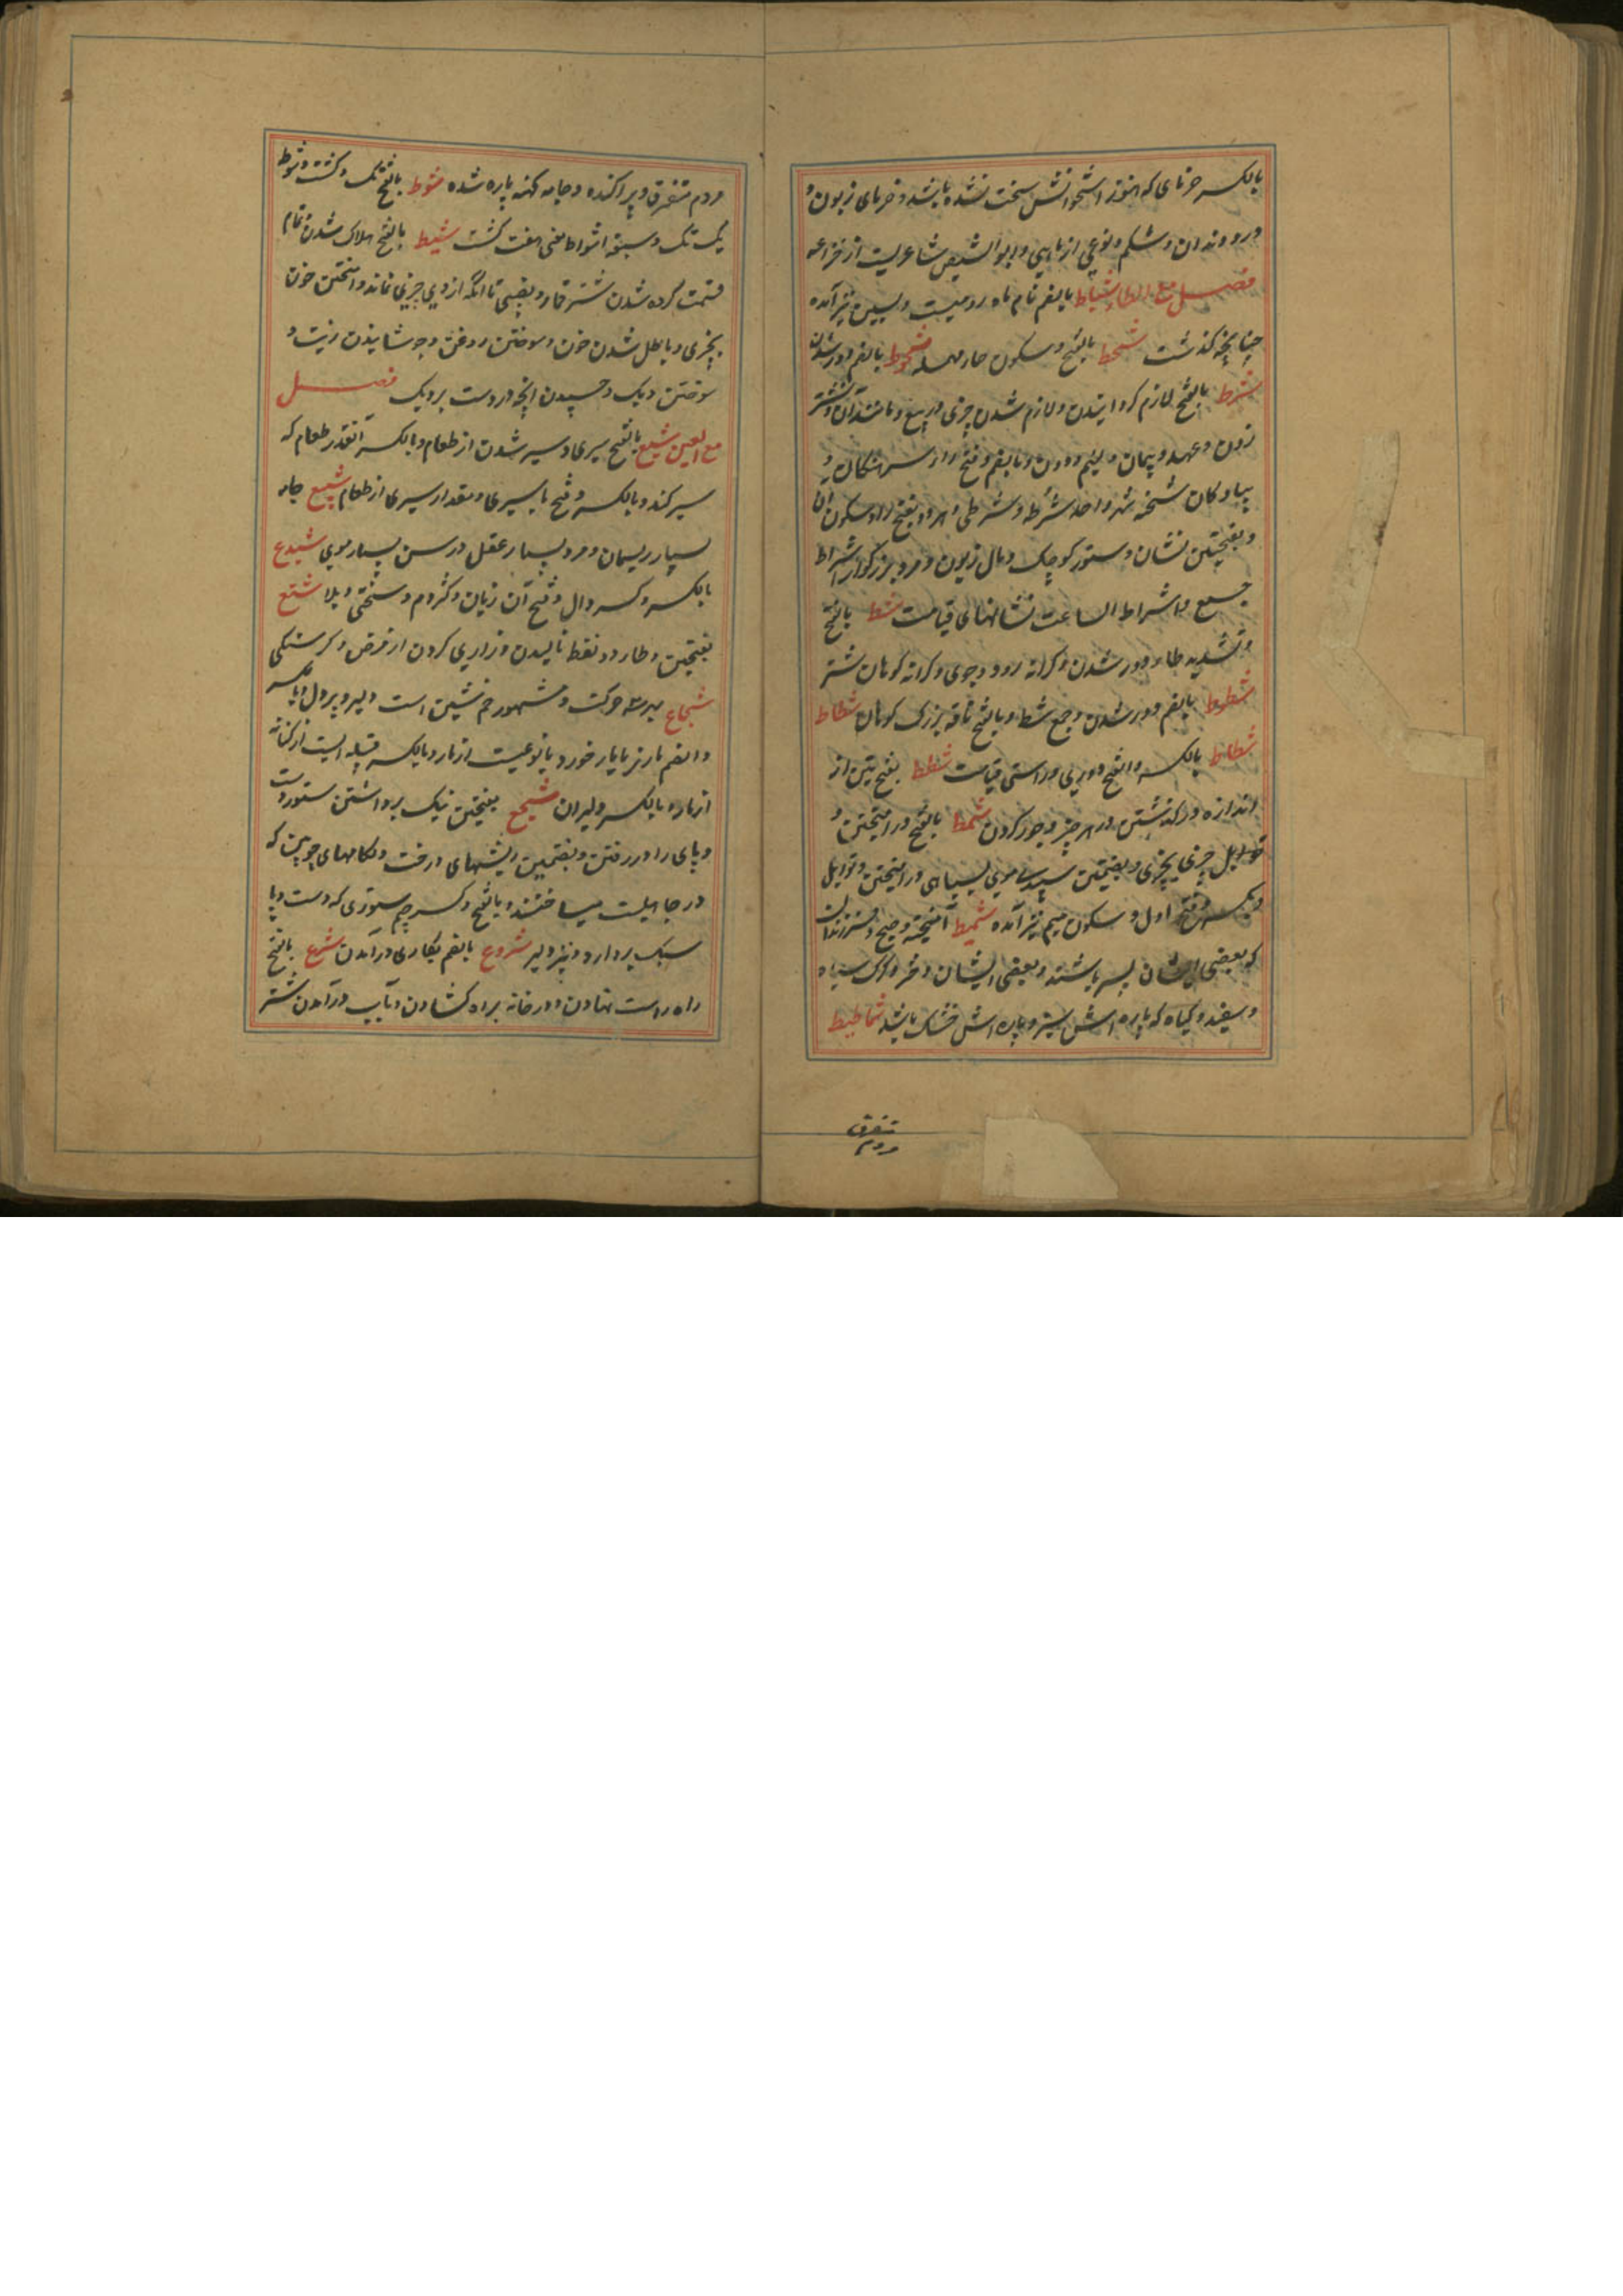 بالکسر خرمای که هنوز استخوانش سخت نشده باشد و خرمای زبون و
درد دندان و شکم و نوعی از ماهی و ابو الشیص شاعریست از خزاعه
فصل مع الطاء شباط بالضم نام ماه رومیست و بسین نیز آمده
چنانچه گذشت شحط بالفتح و سکون حاء مهمله شحوط بالضم دور شدن
شرط بالفتح لازم گردانیدن و لازم شدن چیزی در بیع و مانند آن و نشتر
زدن و عهد و پیمان و لئیم و دون و بالضم و فتح را از سرهنگان و
پیادگان شحنه شهر واحد شرطه و شرطی و هر دو بفتح را و سکون آن
و بفتحتین نشان و ستور کوچک و مال زبون و مرد بزرگوار اشراط
جمع و اشراط الساعت نشانهای قیامت شط بالفتح
و تشدید طا دور شدن و کرانه رود و جوی و کرانه کوهان شتر
شطوط بالضم دور شدن و جمع شط و بالفتح ناقه بزرگ کوهان شطاط
شطاط بالکسر و الفتح دوری و راستی قامت شطط بفتحتین از
اندازه درگذشتن در هر چیز و جور کردن شمط بالفتح درآمیختن و
توابل چیزی بچیزی و بفتحتین سپیدی موی بسیاهی درآمیختن و توابل
دیگ و بفتح اول و سکون میم نیز آمده شمیط آمیخته و صبح و فرزندان
که بعضی ایشان پسر باشند و بعضی ایشان دختر و گرگ سیاه
و سفید و گیاه که پاره اش سبز و پاره اش خشک باشد شماطیط
متفرق
مردم
مردم متفرق و پراکنده و جامه کهنه پاره شده شوط بالفتح تک و گشت و شوط
یک تک و سبعة اشواط یعنی هفت گشت شیط بالفتح هلاک شدن تمام
قسمت کرده شدن شتر قمار و بقیتی تا آنکه از وی چیزی نماند و آمیختن خون
بچیزی و باطل شدن خون و سوختن روغن و جوشانیدن زیت و
سوختن دیک و چسپیدن آنچه دروست بر دیک فصل
مع العین شبع بالفتح سیری و سیر شدن از طعام و بالکسر آنقدر طعام که
سیر کند و بالکسر و فتح با سیری و مقدار سیری از طعام شبیع جامه
بسیار ریسمان و مرد بسیار عقل و رسن بسیار موی شبدع
بالکسر و کسر دال و فتح آن زبان و کژدم و سختی و بلا شتع
بفتحتین و تاء دو نقطه نالیدن و زاری کردن از مرض و گرسنگی
شجاع بهر سه حرکت و مشهور ضم شین است دلیر و پر دل و بالکسر
و الضم مار نر یا مار خورد یا نوعیست از مار و بالکسر قبیله ایست از کنانه
از مار و بالکسر دلیران شجع بفتحتین نیک برداشتن ستور دست
و پای را در رفتن و بضمتین ریشهای درخت و لکامهای چوبین که
در جاهلیت میساختند و بالفتح و کسر جیم ستوری که دست و پا
سبک بردارد و نیز دلیر شروع بالضم بکاری درآمدن شرع بالفتح
راه راست نهادن و در خانه براه کشادن و بآب درآمدن شتر